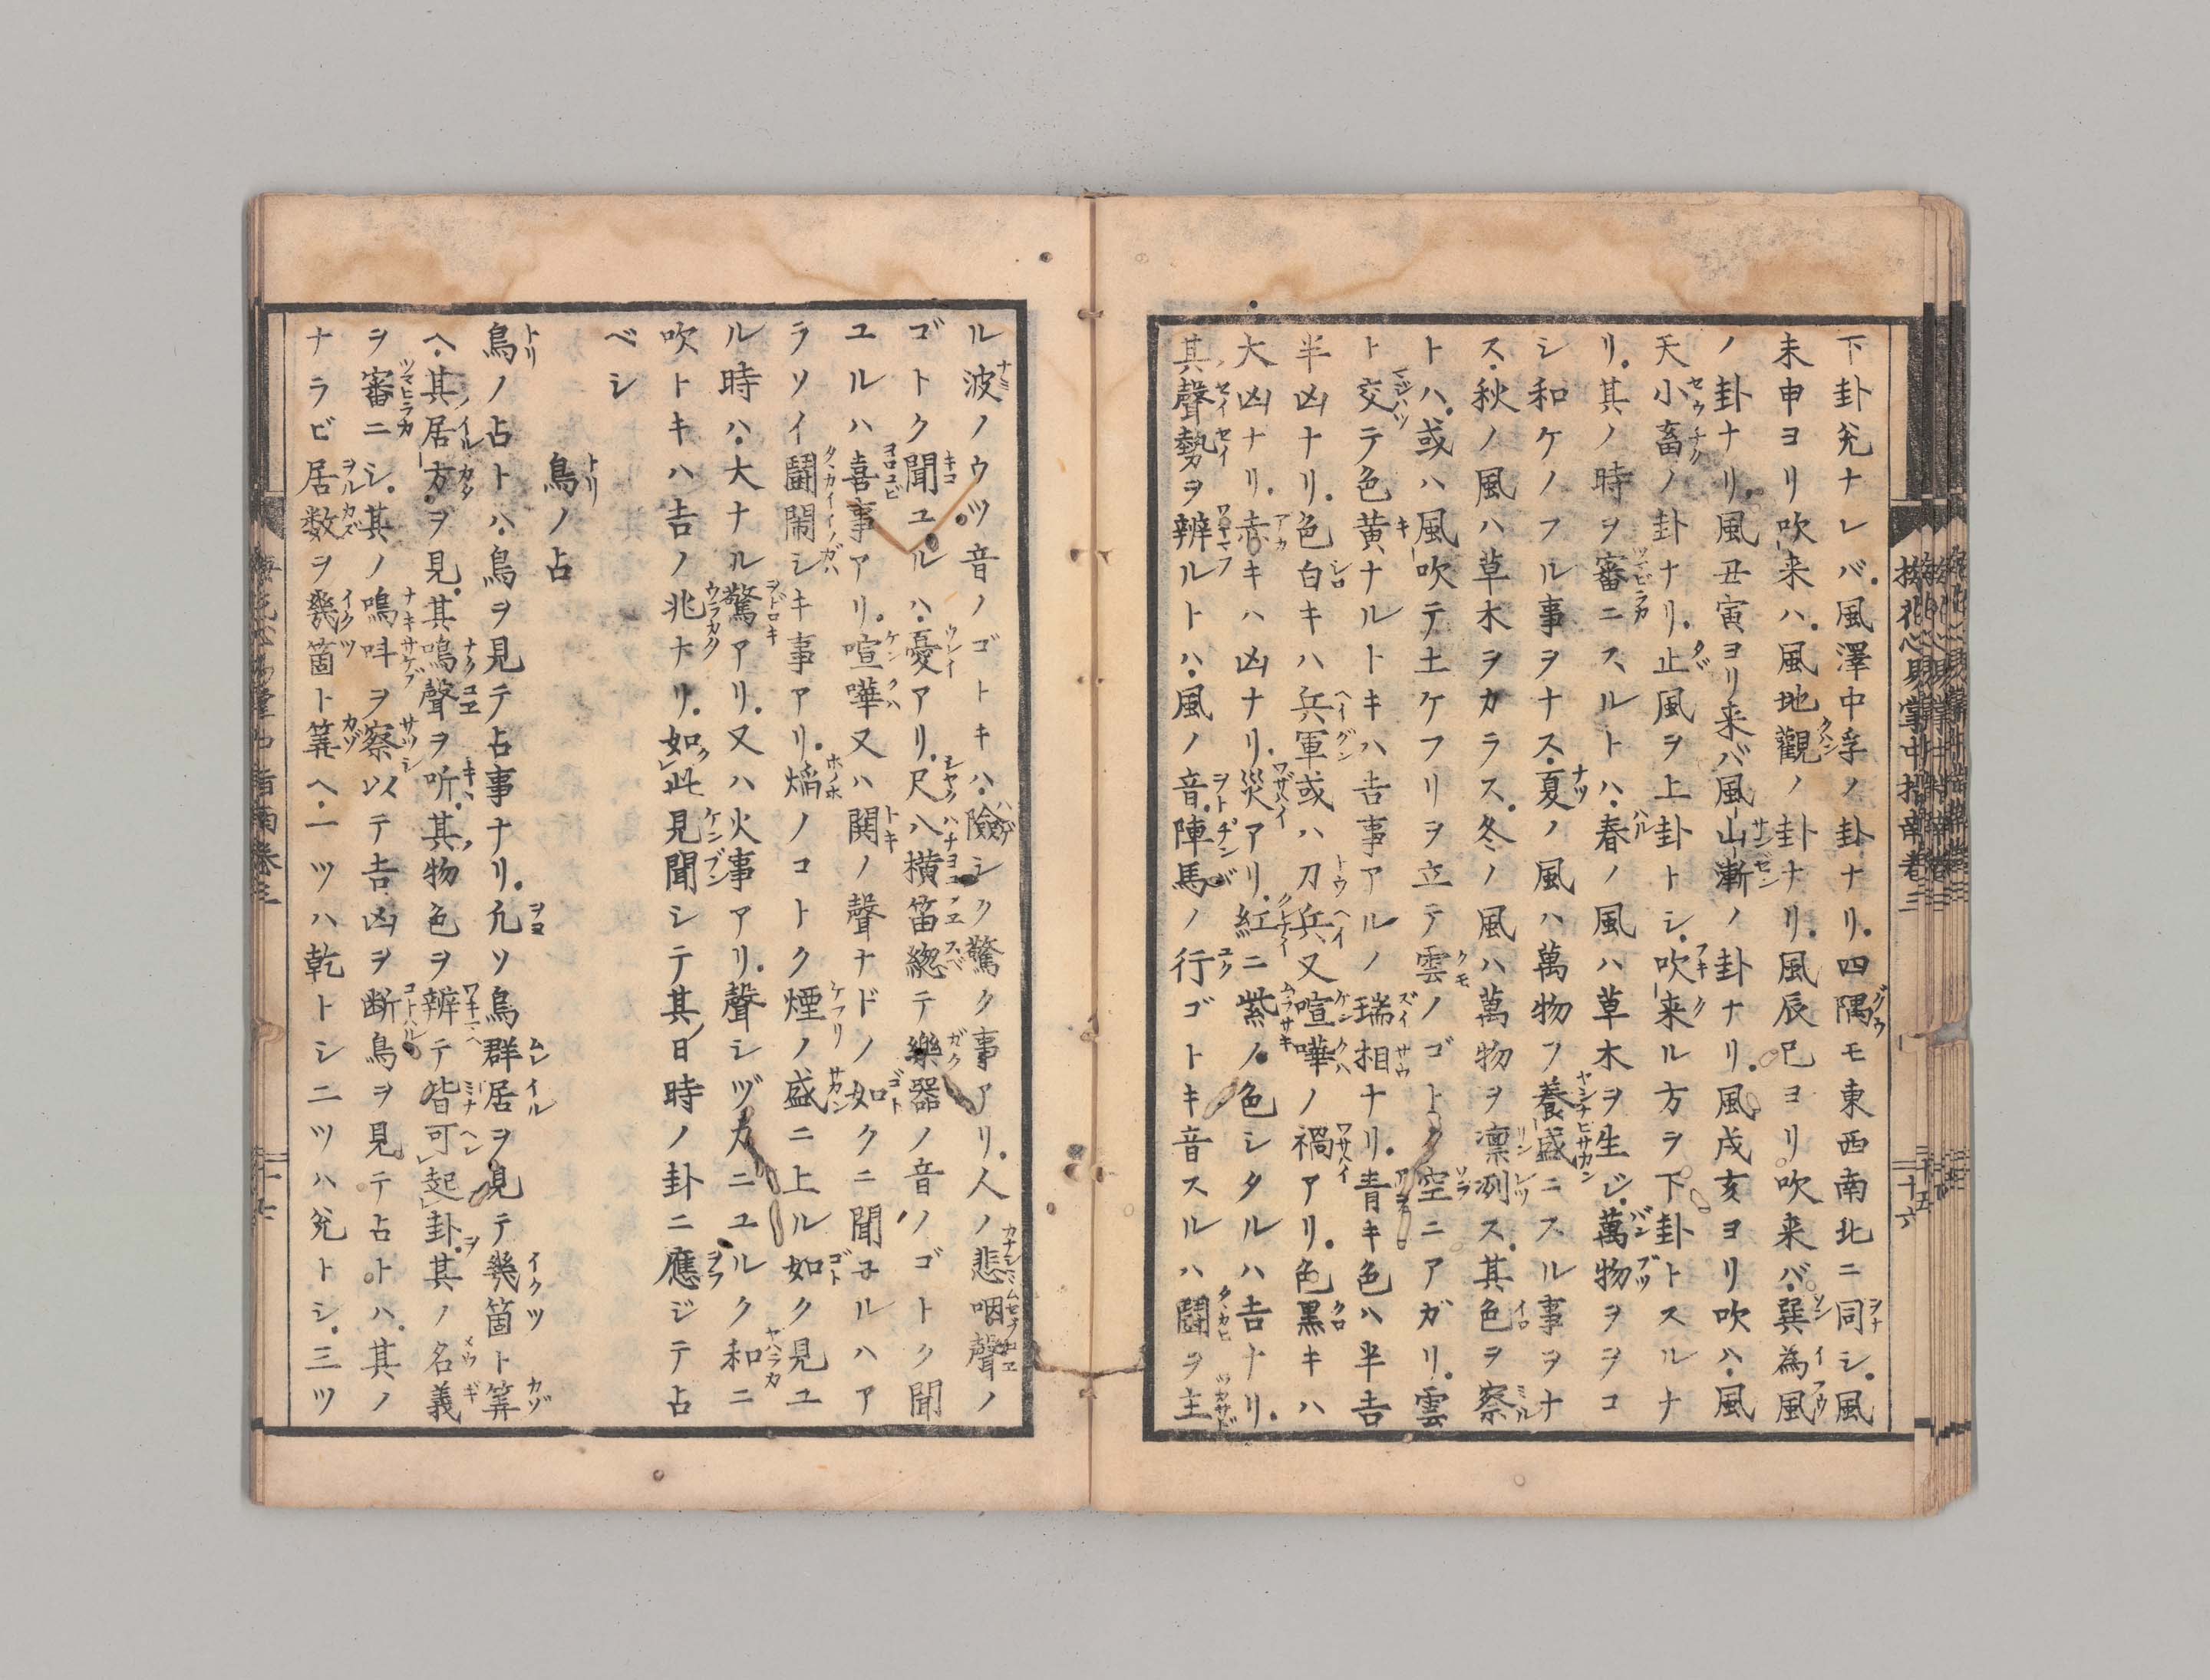 下卦兊ナレバ風澤中孚ノ卦ナリ四隅モ東西南北ニ同シ風
未申ヨリ吹来ハ風地觀ノ卦ナリ風辰巳ヨリ吹来バ巽為風
ノ卦ナリ風丑寅ヨリ来バ風山漸ノ卦ナリ風戌亥ヨリ吹ハ風
天小畜ノ卦ナリ止風ヲ上卦トシ吹来ル方ヲ下卦トスルナ
リ其ノ時ヲ審ニスルトハ春ノ風ハ草木ヲ生ジ萬物ヲヲコ
シ和ケノフル事ヲナス夏ノ風ハ萬物フ養盛ニスル事ヲナ
ス秋ノ風ハ草木ヲカラス冬ノ風ハ萬物ヲ凛冽ス其色ヲ察
トハ或ハ風吹テ土ケフリヲ立テ雲ノゴトク空ニアガリ雲
ト交テ色黄ナルトキハ吉事アルノ瑞相ナリ青キ色ハ半吉
半凶ナリ色白キハ兵軍或ハ刀兵又喧嘩ノ禍アリ色黒キハ
大凶ナリ赤キハ凶ナリ災アリ紅ニ紫ノ色シタルハ吉ナリ
其聲勢ヲ辨ルトハ風ノ音陣馬ノ行ゴトキ音スルハ鬪ヲ主
ル波ノウツ音ノゴトキハ險シク驚ク事アリ人ノ悲咽聲ノ
ゴトク聞ユルハ憂アリ尺八横笛總テ樂器ノ音ノゴトク聞
ユルハ喜事アリ喧嘩又ハ関ノ聲ナドノ如クニ聞ユルハア
ラソイ鬪閙シキ事アリ焔ノコトク煙ノ盛ニ上ル如ク見ユ
ル時ハ大ナル驚アリ又ハ火事アリ聲シヅカニユルク和ニ
吹トキハ吉ノ兆ナリ如此見聞シテ其日時ノ卦ニ應ジテ占
ベシ
鳥ノ占
鳥ノ占トハ鳥ヲ見テ占事ナリ凢ソ鳥群居ヲ見テ幾箇ト筭
ヘ其居方ヲ見其鳴聲ヲ听其物色ヲ辨テ皆可起卦其ノ名義
ヲ審ニシ其ノ鳴呌ヲ察以テ吉凶ヲ断鳥ヲ見テ占トハ其ノ
ナラビ居数ヲ幾箇ト筭ヘ一ツハ乾トシ二ツハ兊トシ三ツ